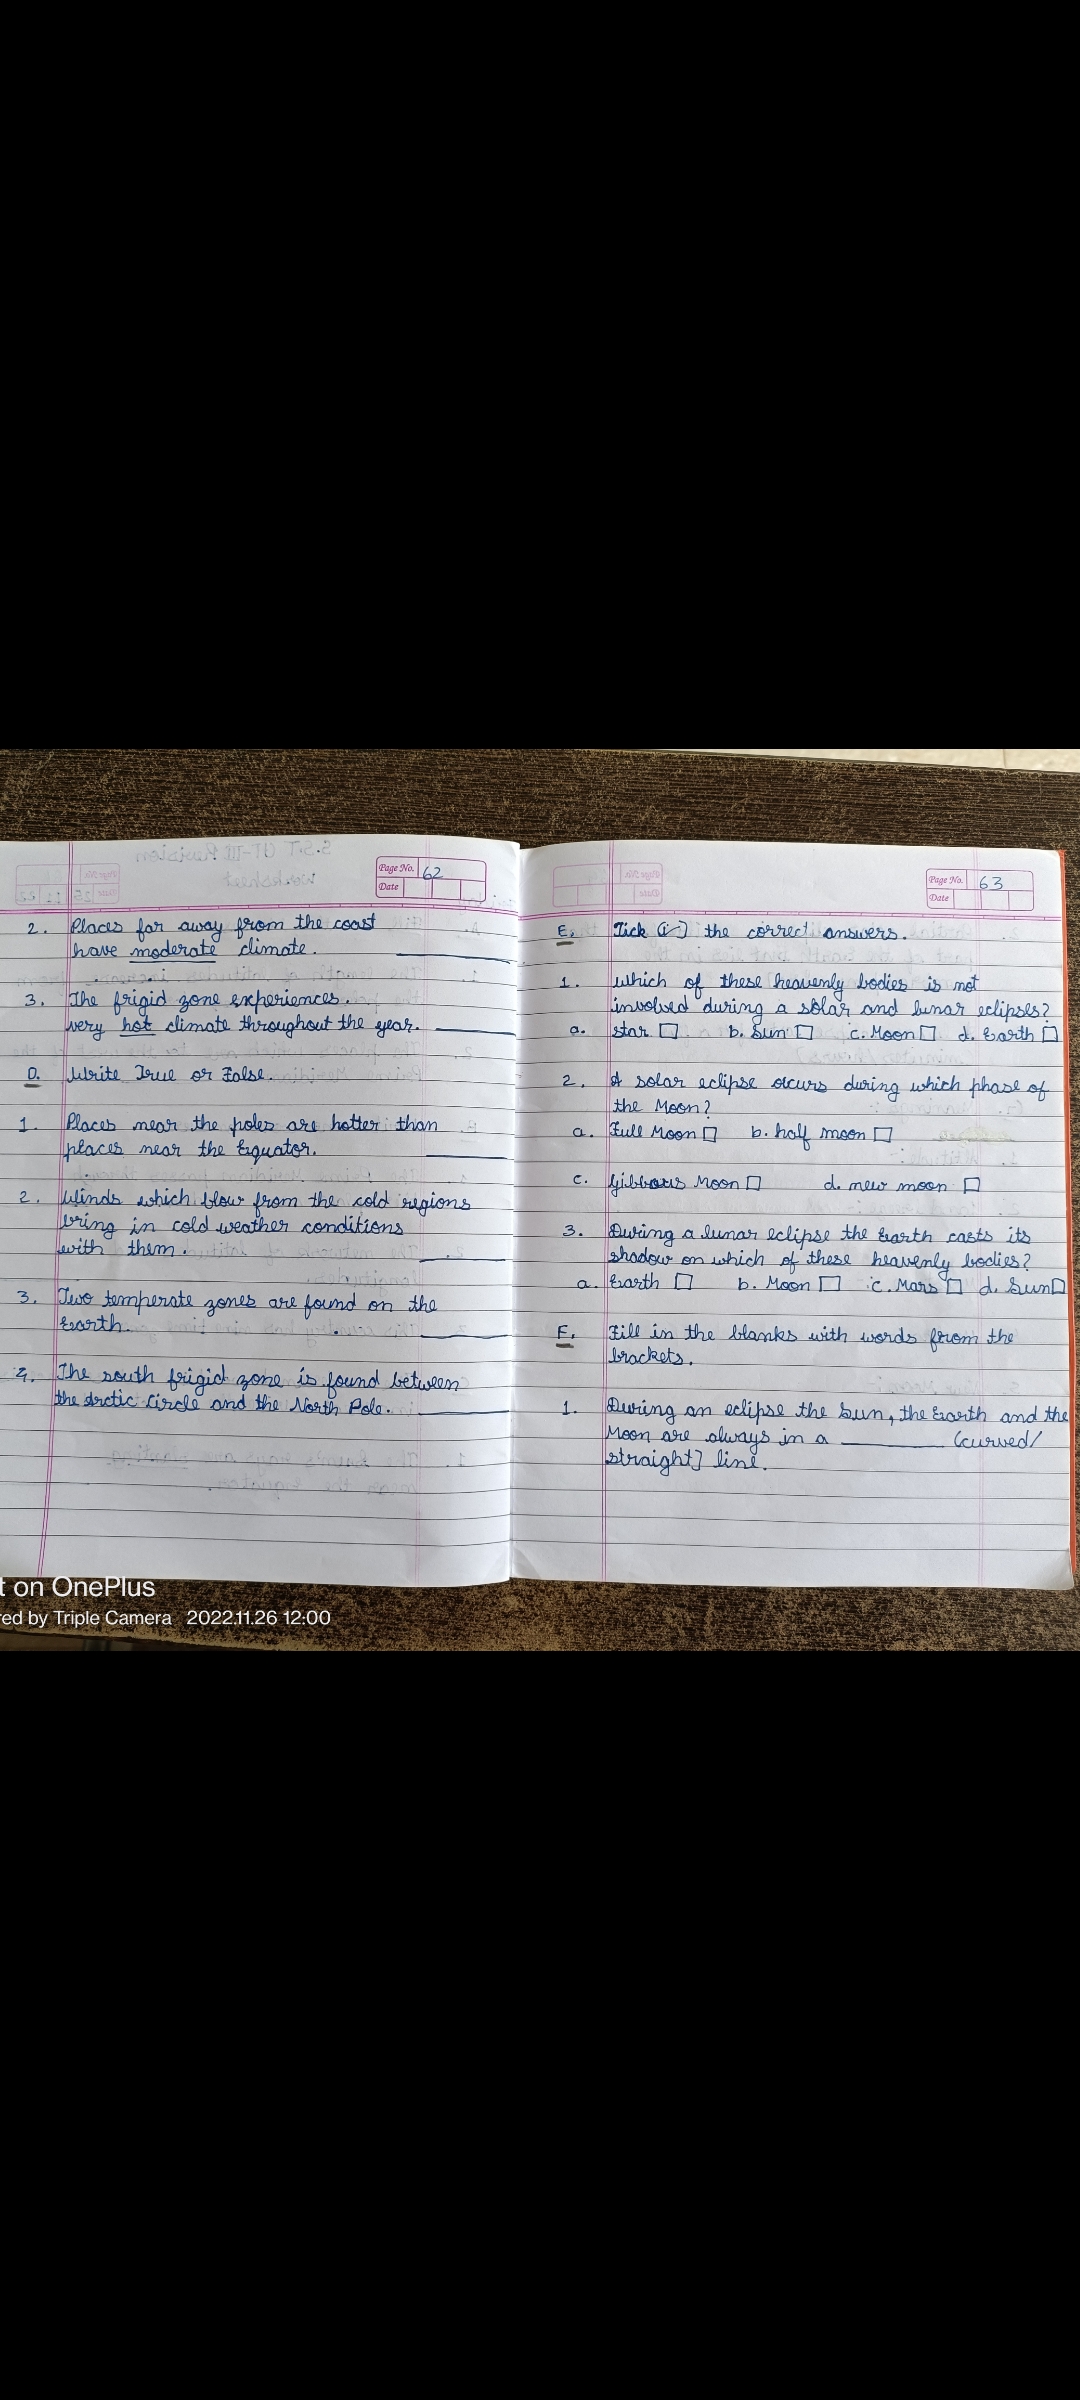 Page No. 62
Date
2. Places far away from the coast
have moderate climate. ________
3. The frigid zone experiences.
very hot climate throughout the year. ________
D. Write True or False.
1. Places near the poles are hotter than
places near the Equator. ________
2. Winds which blow from the cold regions
bring in cold weather conditions
with them. ________
3. Two temperate zones are found on the
Earth. ________
4. The south frigid zone is found between
the Arctic Circle and the North Pole. ________
Page No. 63
Date
E. Tick (✓) the correct answers.
1. which of these heavenly bodies is not
involved during a solar and lunar eclipses?
a. star □ b. Sun □ c. Moon □ d. Earth □
2. A solar eclipse occurs during which phase of
the Moon?
a. Full Moon □ b. half moon □
c. Gibbous Moon □ d. new moon □
3. During a lunar eclipse the Earth casts its
shadow on which of these heavenly bodies?
a. Earth □ b. Moon □ c. Mars □ d. Sun □
F. Fill in the blanks with words from the
brackets.
1. During an eclipse the Sun, the Earth and the
Moon are always in a ________ (curved/
straight] line.
t on OnePlus
red by Triple Camera 2022.11.26 12:00